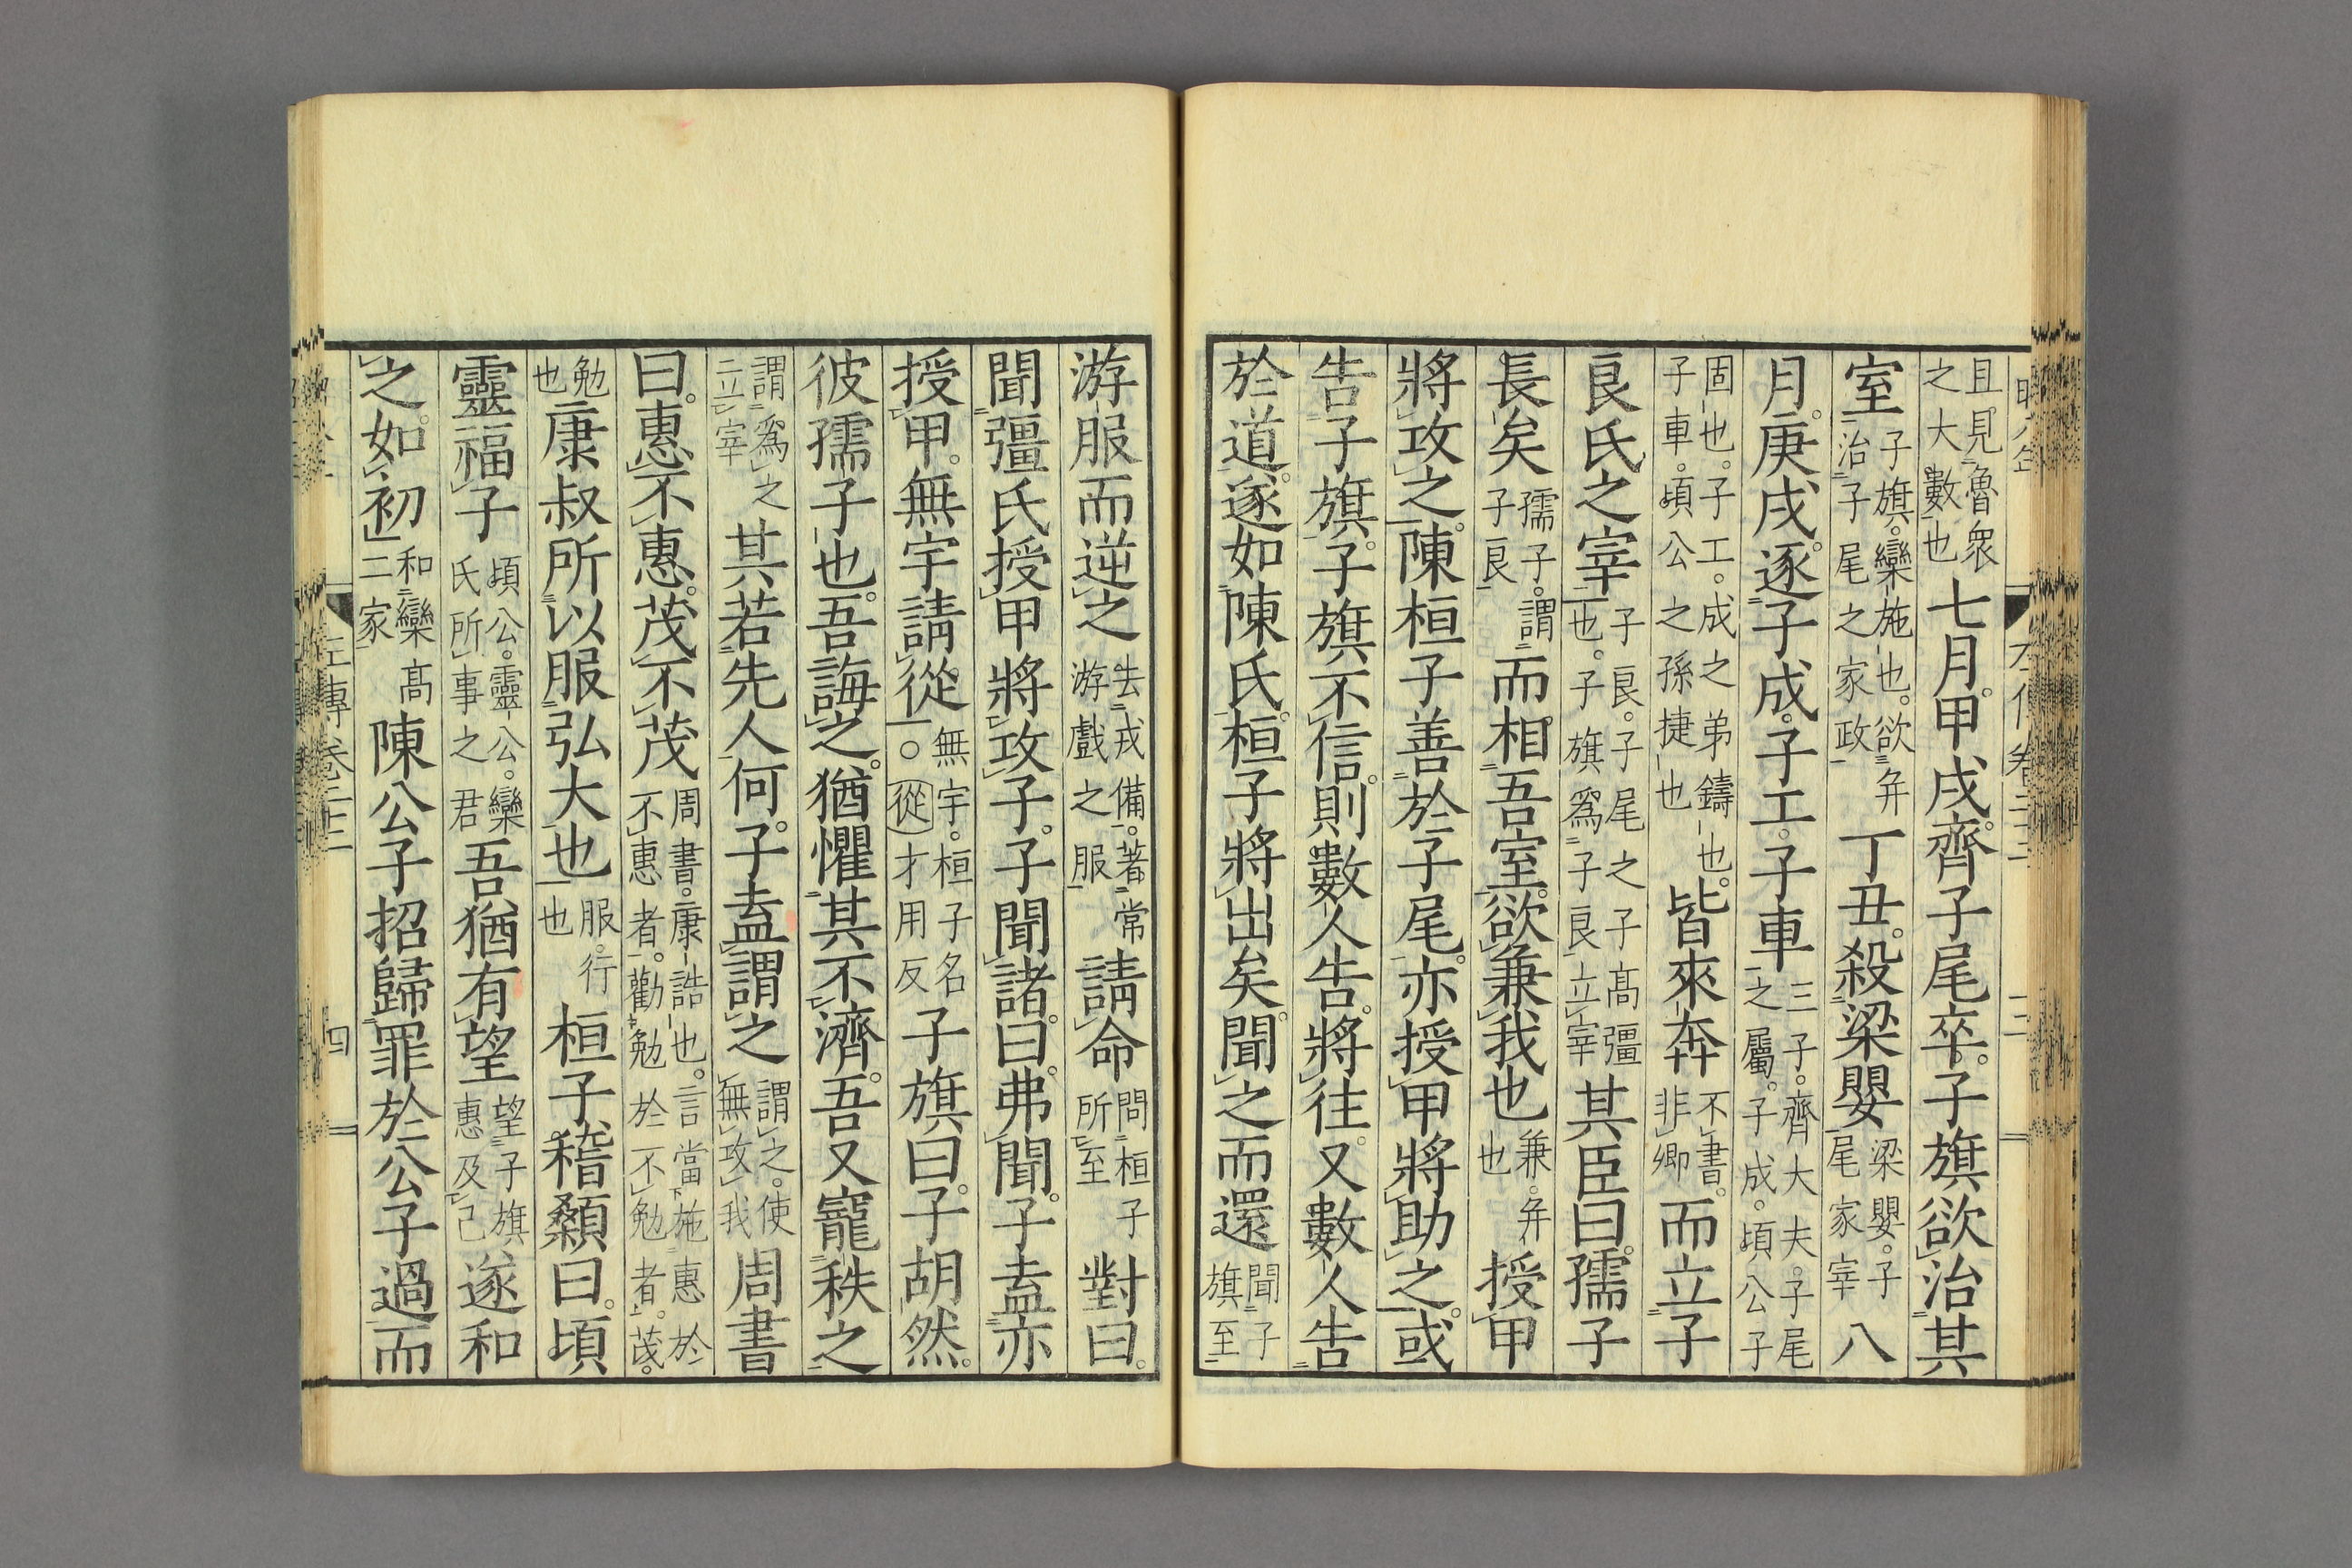 且見魯衆之大數也七月。甲戌。齊子尾卒。子旗欲治其
室子旗。欒施也。欲并治子尾之家政丁丑。殺梁嬰梁嬰。子尾家宰八
月。庚戌。逐子成。子工。子車三子。齊大夫。子尾之屬。子成。頃公子
固也。子工。成之弟鑄也。子車。頃公之孫捷也皆來奔不書。非卿而立子
良氏之宰子良。子尾之子高彊也。子旗爲子良立宰其臣曰。孺子
長矣孺子。謂子良而相吾室。欲兼我也兼。并也授甲
將攻之。陳桓子善於子尾。亦授甲將助之。或
告子旗。子旗不信。則數人告。將往。又數人告
於道。遂如陳氏。桓子將出矣。聞之而還聞子旗至
游服而逆之去戎備。著常游戲之服請命問桓子所至對曰。
聞彊氏授甲將攻子。子聞諸。曰。弗聞。子盍亦
授甲。無宇請從。無宇。桓子名○從才用反子旗曰。子胡然。
彼孺子也。吾誨之。猶懼其不濟。吾又寵秩之
謂爲之立宰其若先人何。子盍謂之謂之。使無攻我周書
曰。惠不惠。茂不茂周書。康誥也。言當施惠於不惠者。勸勉於不勉者。茂。
勉也康叔所以服弘大也服。行也桓子稽顙曰。頃
靈福子頃公。靈公。欒氏所事之君吾猶有望望子旗惠及己遂和
之如初和欒高二家陳公子招歸罪於公子過而
四